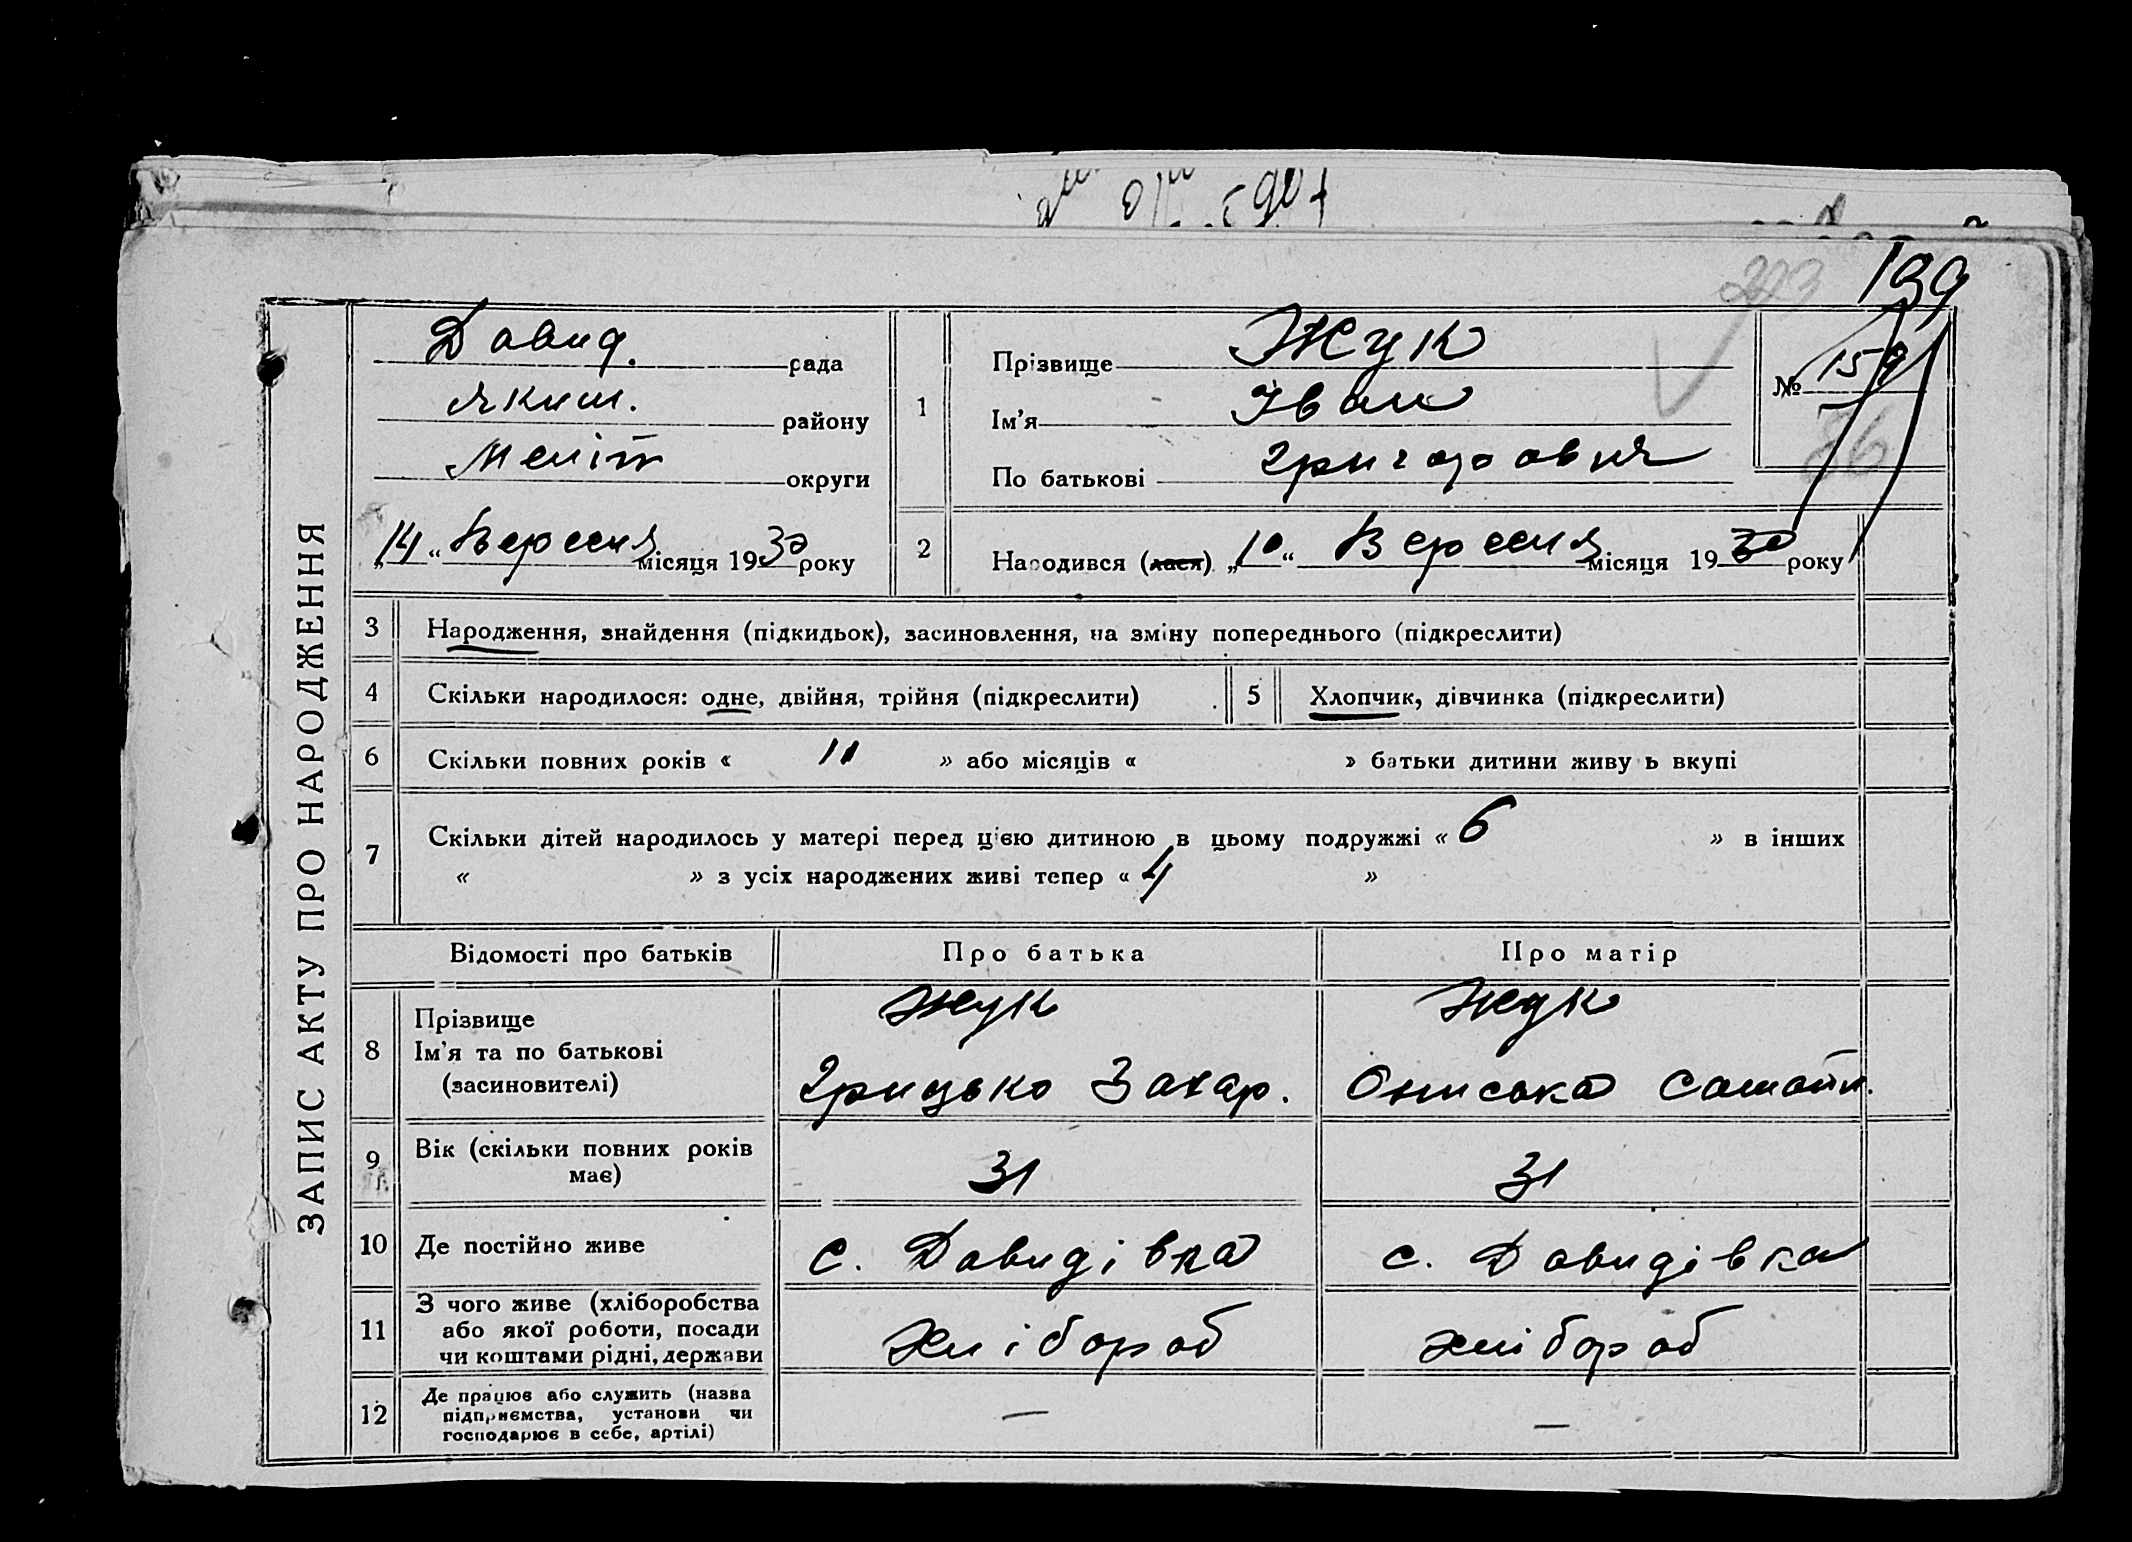 199
ЗАПИС АКТУ ПРО НАРОДЖЕННЯ
Давид. рада
Яким. району
Меліт округи
„14“ Вересня місяця 1930 року
1
Прізвище Жук
Ім'я Іван
По батькові Григорович
№ 159
86
2
Народився (лася) „10“ Вересня місяця 1930 року
3 Народження, знайдення (підкидьок), засиновлення, на зміну попереднього (підкреслити)
4 Скільки народилося: одне, двійня, трійня (підкреслити) 5 Хлопчик, дівчинка (підкреслити)
6 Скільки повних років « 11 » або місяців « » батьки дитини живуть вкупі
7 Скільки дітей народилось у матері перед цією дитиною в цьому подружжі « 6 » в інших
« » з усіх народжених живі тепер « 4 »
Відомості про батьків Про батька Про матір
8 Прізвище
Ім'я та по батькові
(засиновителі)
Жук
Грицько Захар.
Жук
Ониська
9 Вік (скільки повних років
має)
31 31
10 Де постійно живе с. Давидівка с. Давидівка
11 З чого живе (хліборобства
або якої роботи, посади
чи коштами рідні, держави
хлібороб хлібороб
12 Де працює або служить (назва
підприємства, установи чи
господарює в себе, артілі)
— —